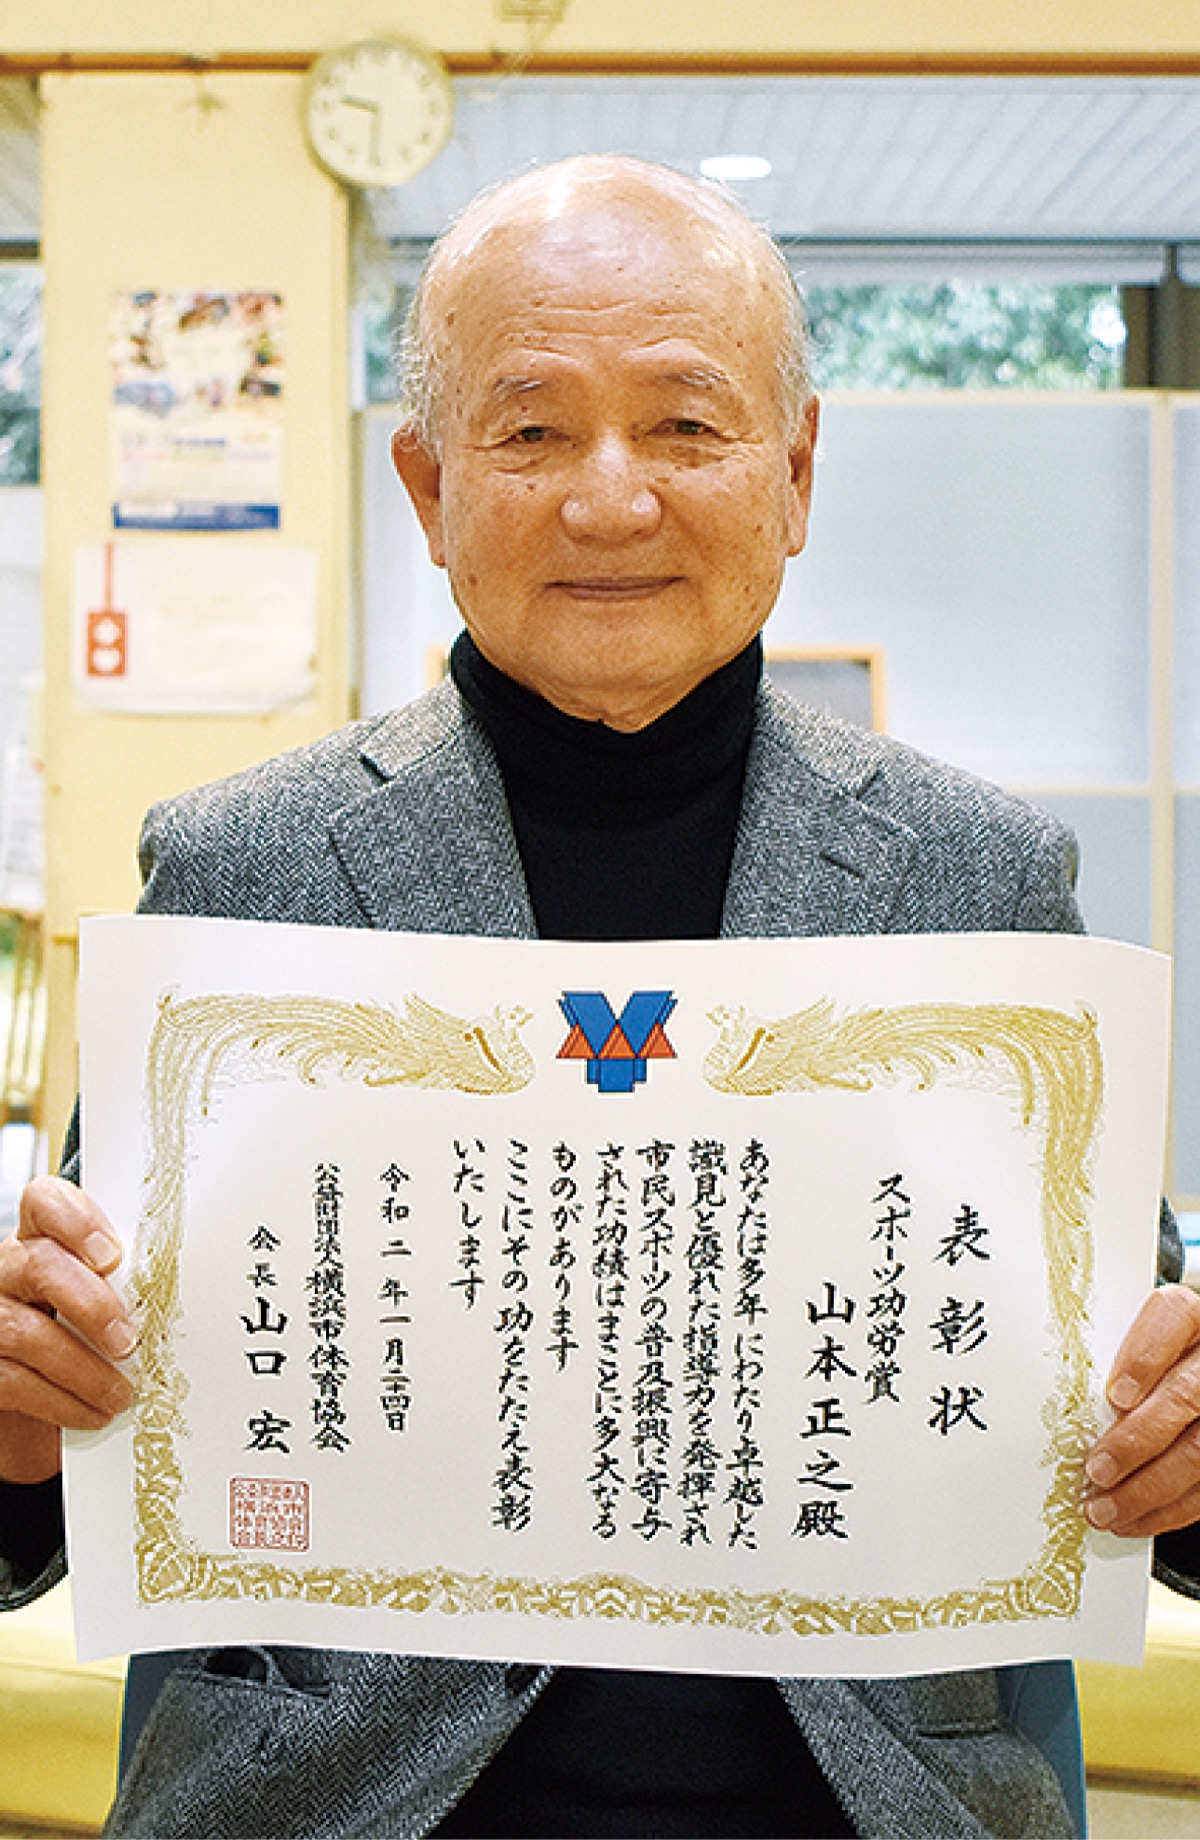 表彰状
スポーツ功労賞
山本正之殿
あなたは多年にわたり卓越した
識見と優れた指導力を発揮され
市民スポーツの普及振興に寄与
された功績はまことに多大なる
ものがあります
ここにその功をたたえ表彰
いたします
令和二年一月二十四日
公益財団法人横浜市体育協会
会長 山口 宏